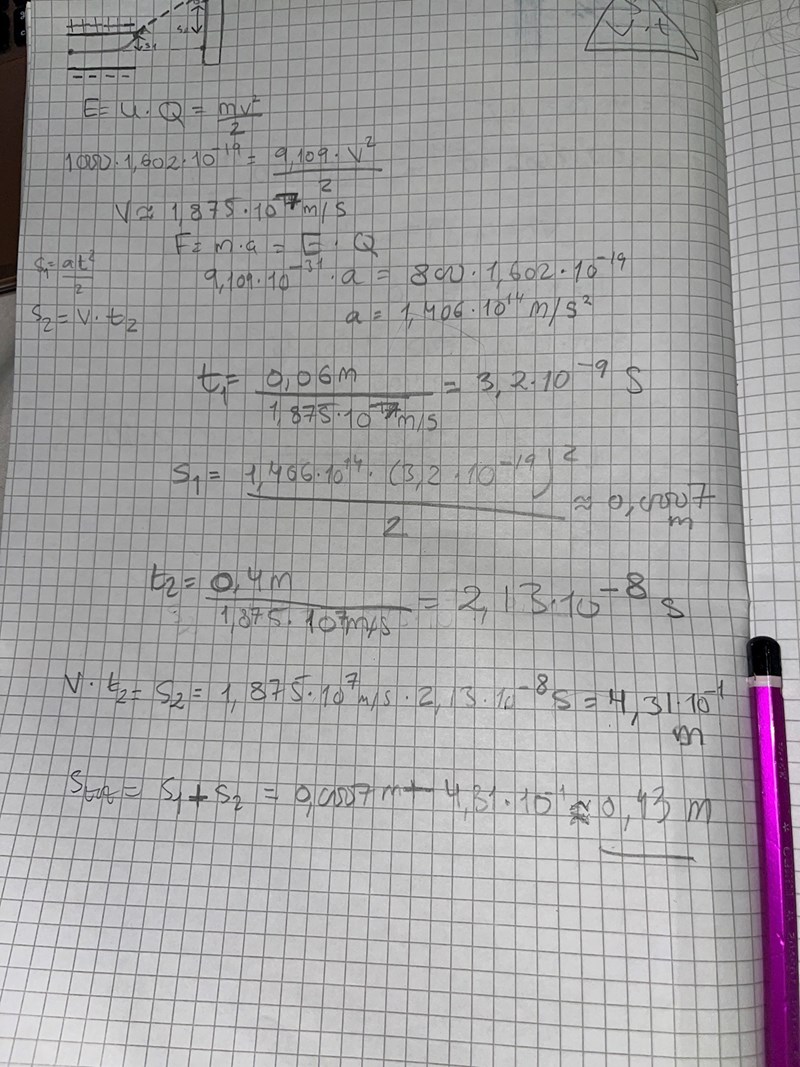 +++++
s₁
s₂
- - - -
s
v · t
E = U · Q = mv²/2
1000 · 1,602 · 10⁻¹⁹ = 9,109 · V²/2
V ≈ 1,875 · 10⁷ m/s
F = m · a = E · Q
s₁ = at²/2
9,109 · 10⁻³¹ · a = 800 · 1,602 · 10⁻¹⁹
s₂ = v · t₂
a = 1,406 · 10¹⁴ m/s²
t₁ = 0,06m / 1,875 · 10⁷ m/s = 3,2 · 10⁻⁹ s
s₁ = 1,406 · 10¹⁴ · (3,2 · 10⁻¹⁹)² / 2 ≈ 0,0007 m
t₂ = 0,4m / 1,875 · 10⁷ m/s = 2,13 · 10⁻⁸ s
V · t₂ = s₂ = 1,875 · 10⁷ m/s · 2,13 · 10⁻⁸ s = 4,31 · 10⁻¹ m
s_tot = s₁ + s₂ = 0,0007 m + 4,31 · 10⁻¹ ≈ 0,43 m